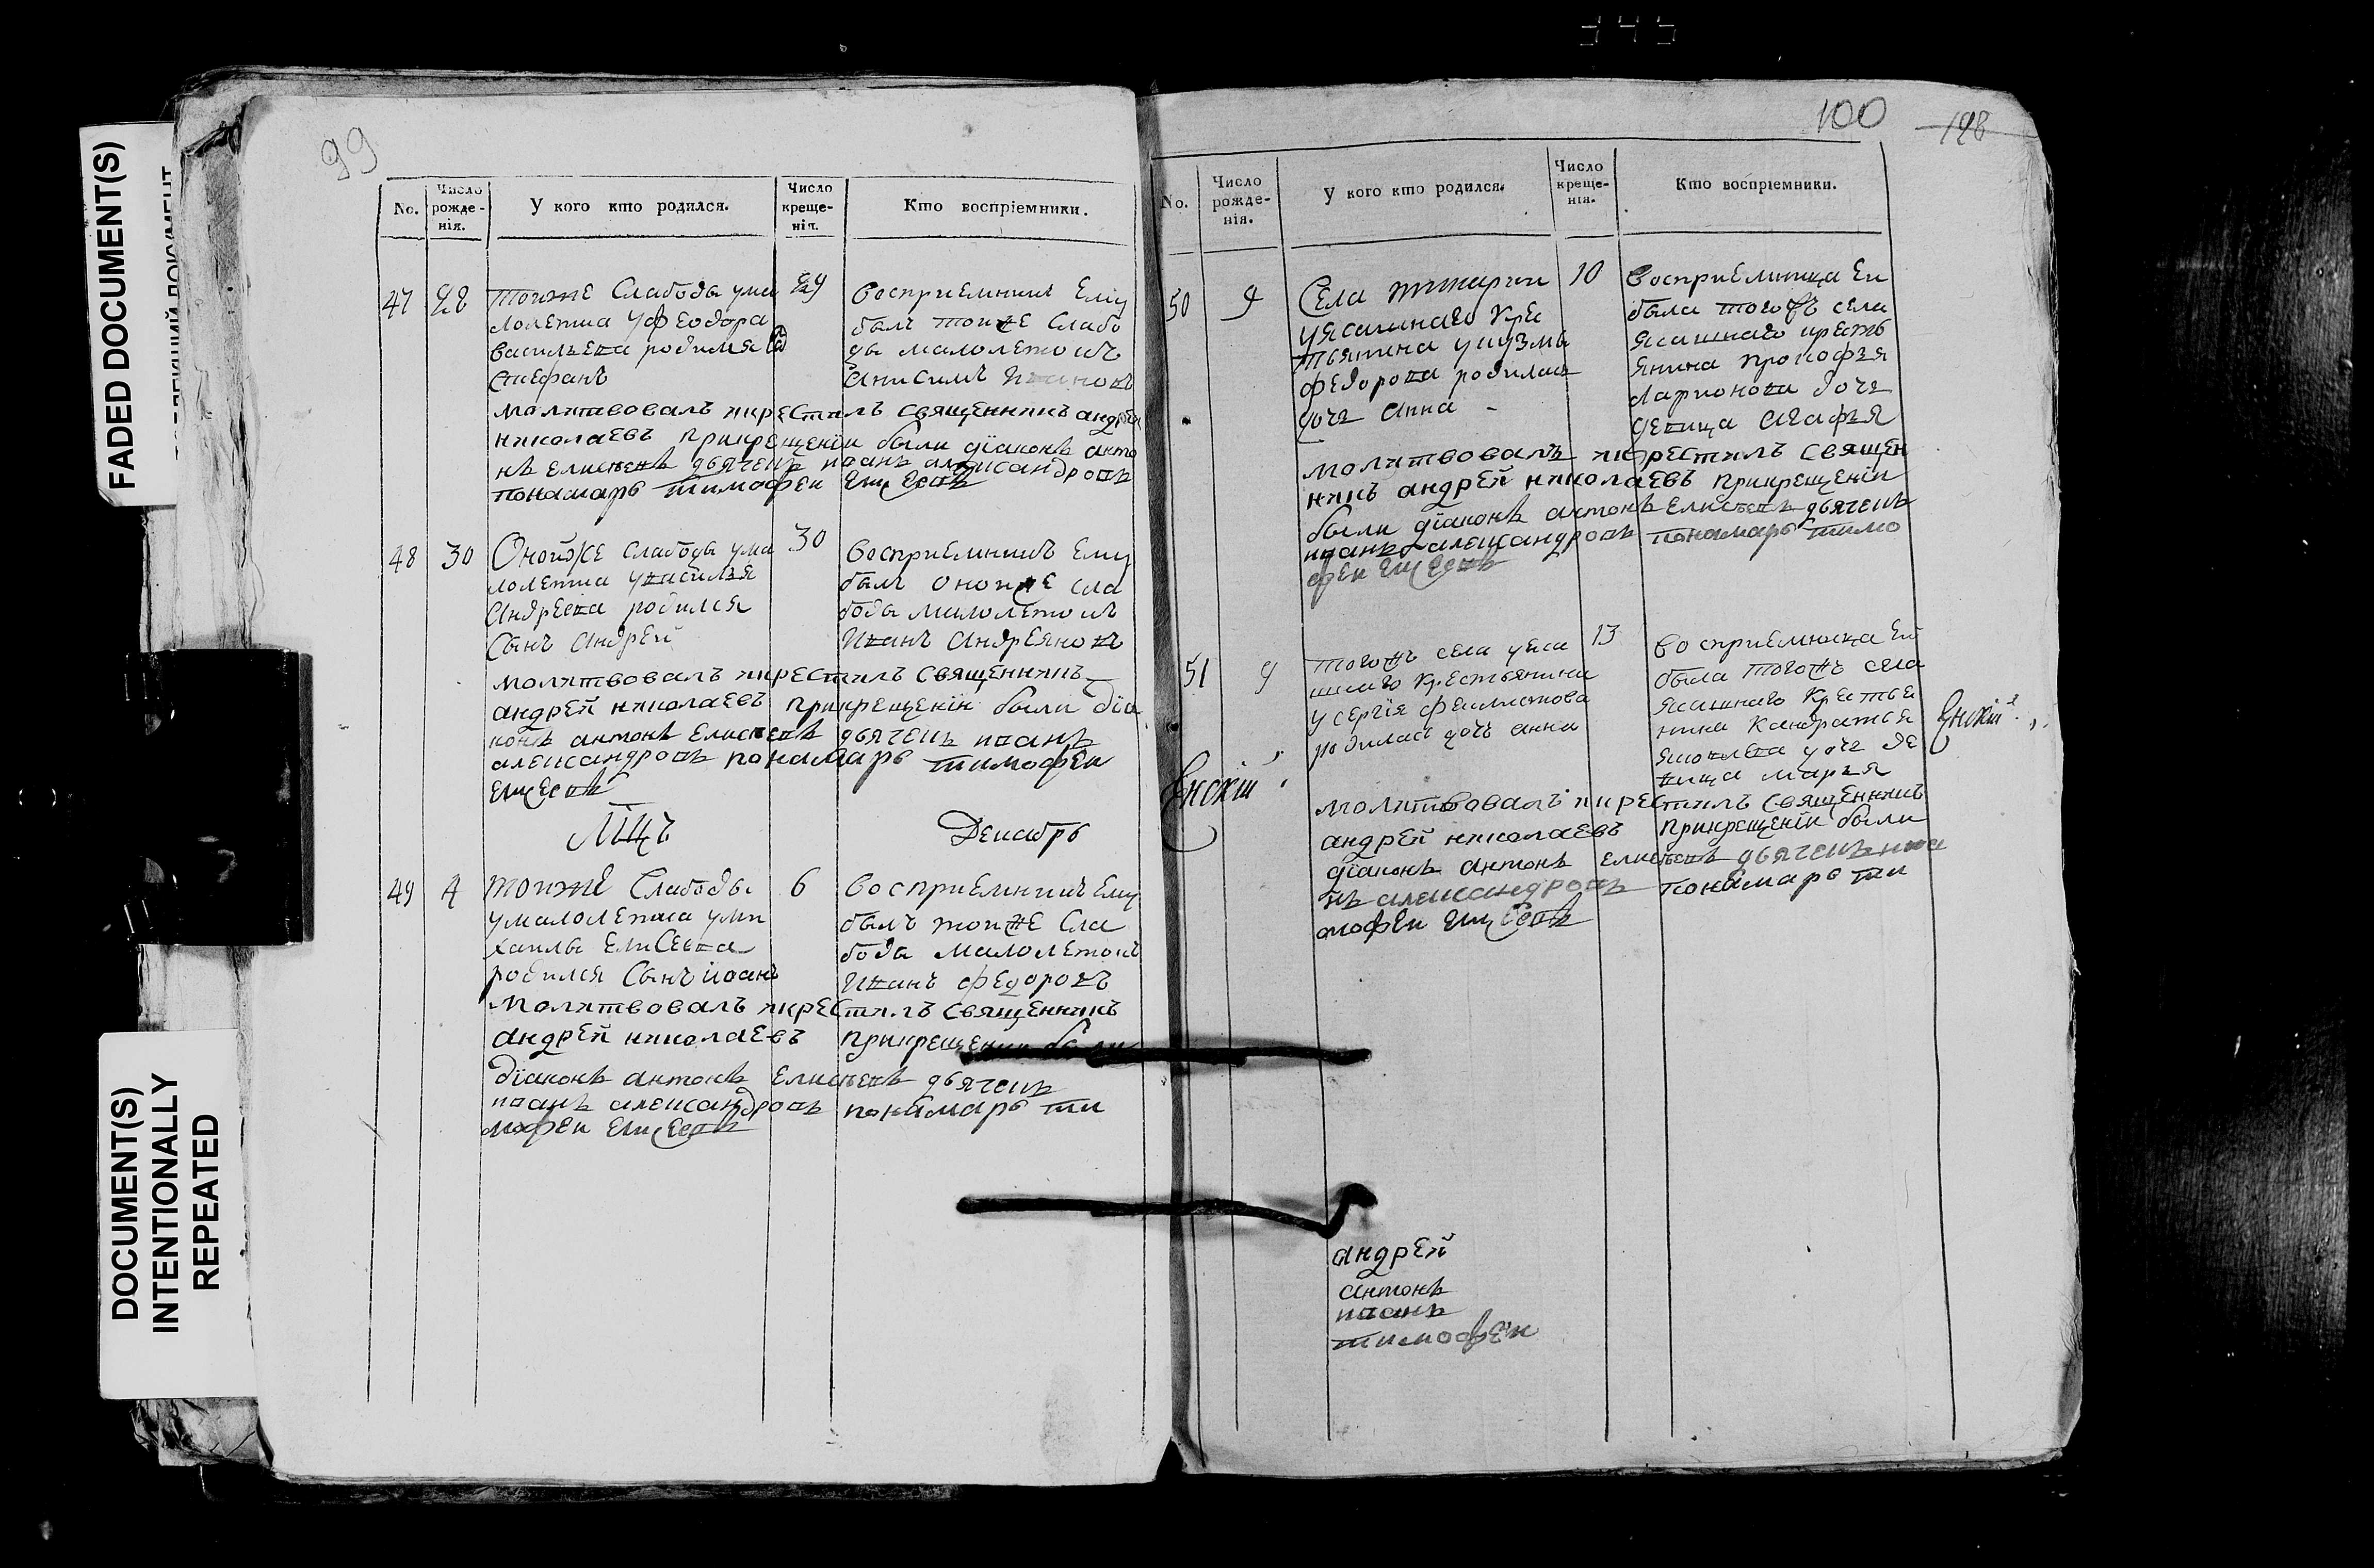 FADED DOCUMENT(S)
DOCUMENT(S)
INTENTIONALLY
REPEATED
99
No.
Число рожде-нія.
У кого кто родился.
Число креще-нія.
Кто воспріемники.
47
28
тоиже Слабоды ума
лолетка уфеодора
васильева родился
стефанъ
29
восприемникъ ему
былъ тоиже слабо
ды малолетокъ
Анисимъ Ивановъ
молитвовалъ икрестилъ священникъ андрей
николаевъ прикрещеніи были діаконъ анто
нъ елисеевъ дьячекъ иванъ александровъ
понамарь тимофеи елисеевъ
48
30
Онойже слабоды ума
лолетка увасилья
Андреева родился
Сынъ Андрей
30
восприемникъ ему
былъ оноиже сла
боды малолетокъ
Иванъ Андреяновъ
молитвовалъ икрестилъ священникъ
андрей николаевъ прикрещеніи были діа
конъ антонъ елисеевъ дьячекъ иванъ
александровъ понамарь тимофеи
елисеевъ
Мцъ Декабрь
49
4
тоиже Слабоды
умалолетка уми
хаилы Елисеева
родился Сынъ іоанъ
6
восприемникъ ему
былъ тоиже сла
боды малолетокъ
Иванъ федоровъ
молитвовалъ икрестилъ священникъ
андрей николаевъ прикрещении были
діаконъ антонъ елисеевъ дьячекъ
иванъ александровъ понамарь ти
мофеи елисеевъ
100
128
No.
Число рожде-нія.
У кого кто родился.
Число креще-нія.
Кто воспріемники.
50
9
Села
уясашнаго кре
тьянина укузмы
федорова родилась
дочь анна
10
восприемница еи
была тогожъ села
ясашнаго кресть
янина прокофья
Ларионова дочь
девица агафья
молитвовалъ икрестилъ священ
никъ андрей николаевъ прикрещеніи
были діаконъ антонъ елисеевъ дьячекъ
иванъ александровъ понамарь тимо
феи елисеевъ
51
9
тогожъ села уяса
шнаго крестьянина
усергія феклистова
родилась дочь анна
13
восприемница ей
была тогожъ села
ясашнаго крестья
нина кандратья
яковлева дочь де
вица марья
молитвовалъ икрестилъ священникъ
андрей николаевъ прикрещеніи были
діаконъ антонъ елисеевъ дьячекъ ива
нъ александровъ понамарь ти
мофеи елисеевъ
андрей
антонъ
иванъ
тимофеи